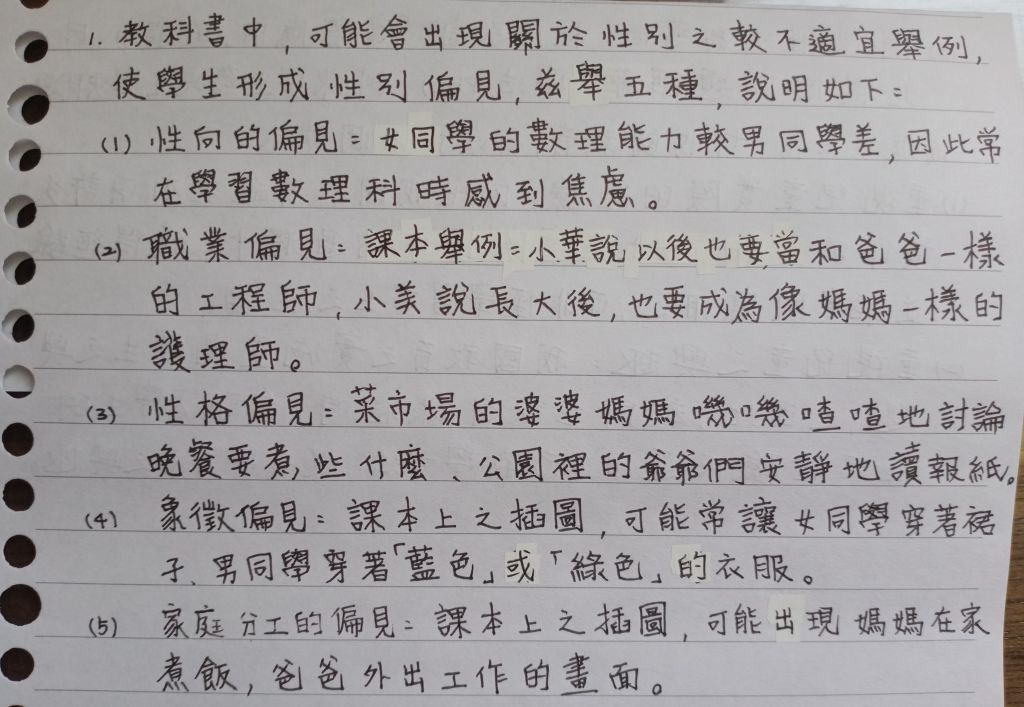 1. 教科書中,可能會出現關於性別之較不適宜舉例,
使學生形成性別偏見,茲舉五種,說明如下:
(1) 性向的偏見:女同學的數理能力較男同學差,因此常
在學習數理科時感到焦慮。
(2) 職業偏見:課本舉例:小華說以後也要當和爸爸一樣
的工程師,小美說長大後,也要成為像媽媽一樣的
護理師。
(3) 性格偏見:菜市場的婆婆媽媽嘰嘰喳喳地討論
晚餐要煮些什麼、公園裡的爺爺們安靜地讀報紙。
(4) 象徵偏見:課本上之插圖,可能常讓女同學穿著裙
子、男同學穿著「藍色」或「綠色」的衣服。
(5) 家庭分工的偏見:課本上之插圖,可能出現媽媽在家
煮飯,爸爸外出工作的畫面。